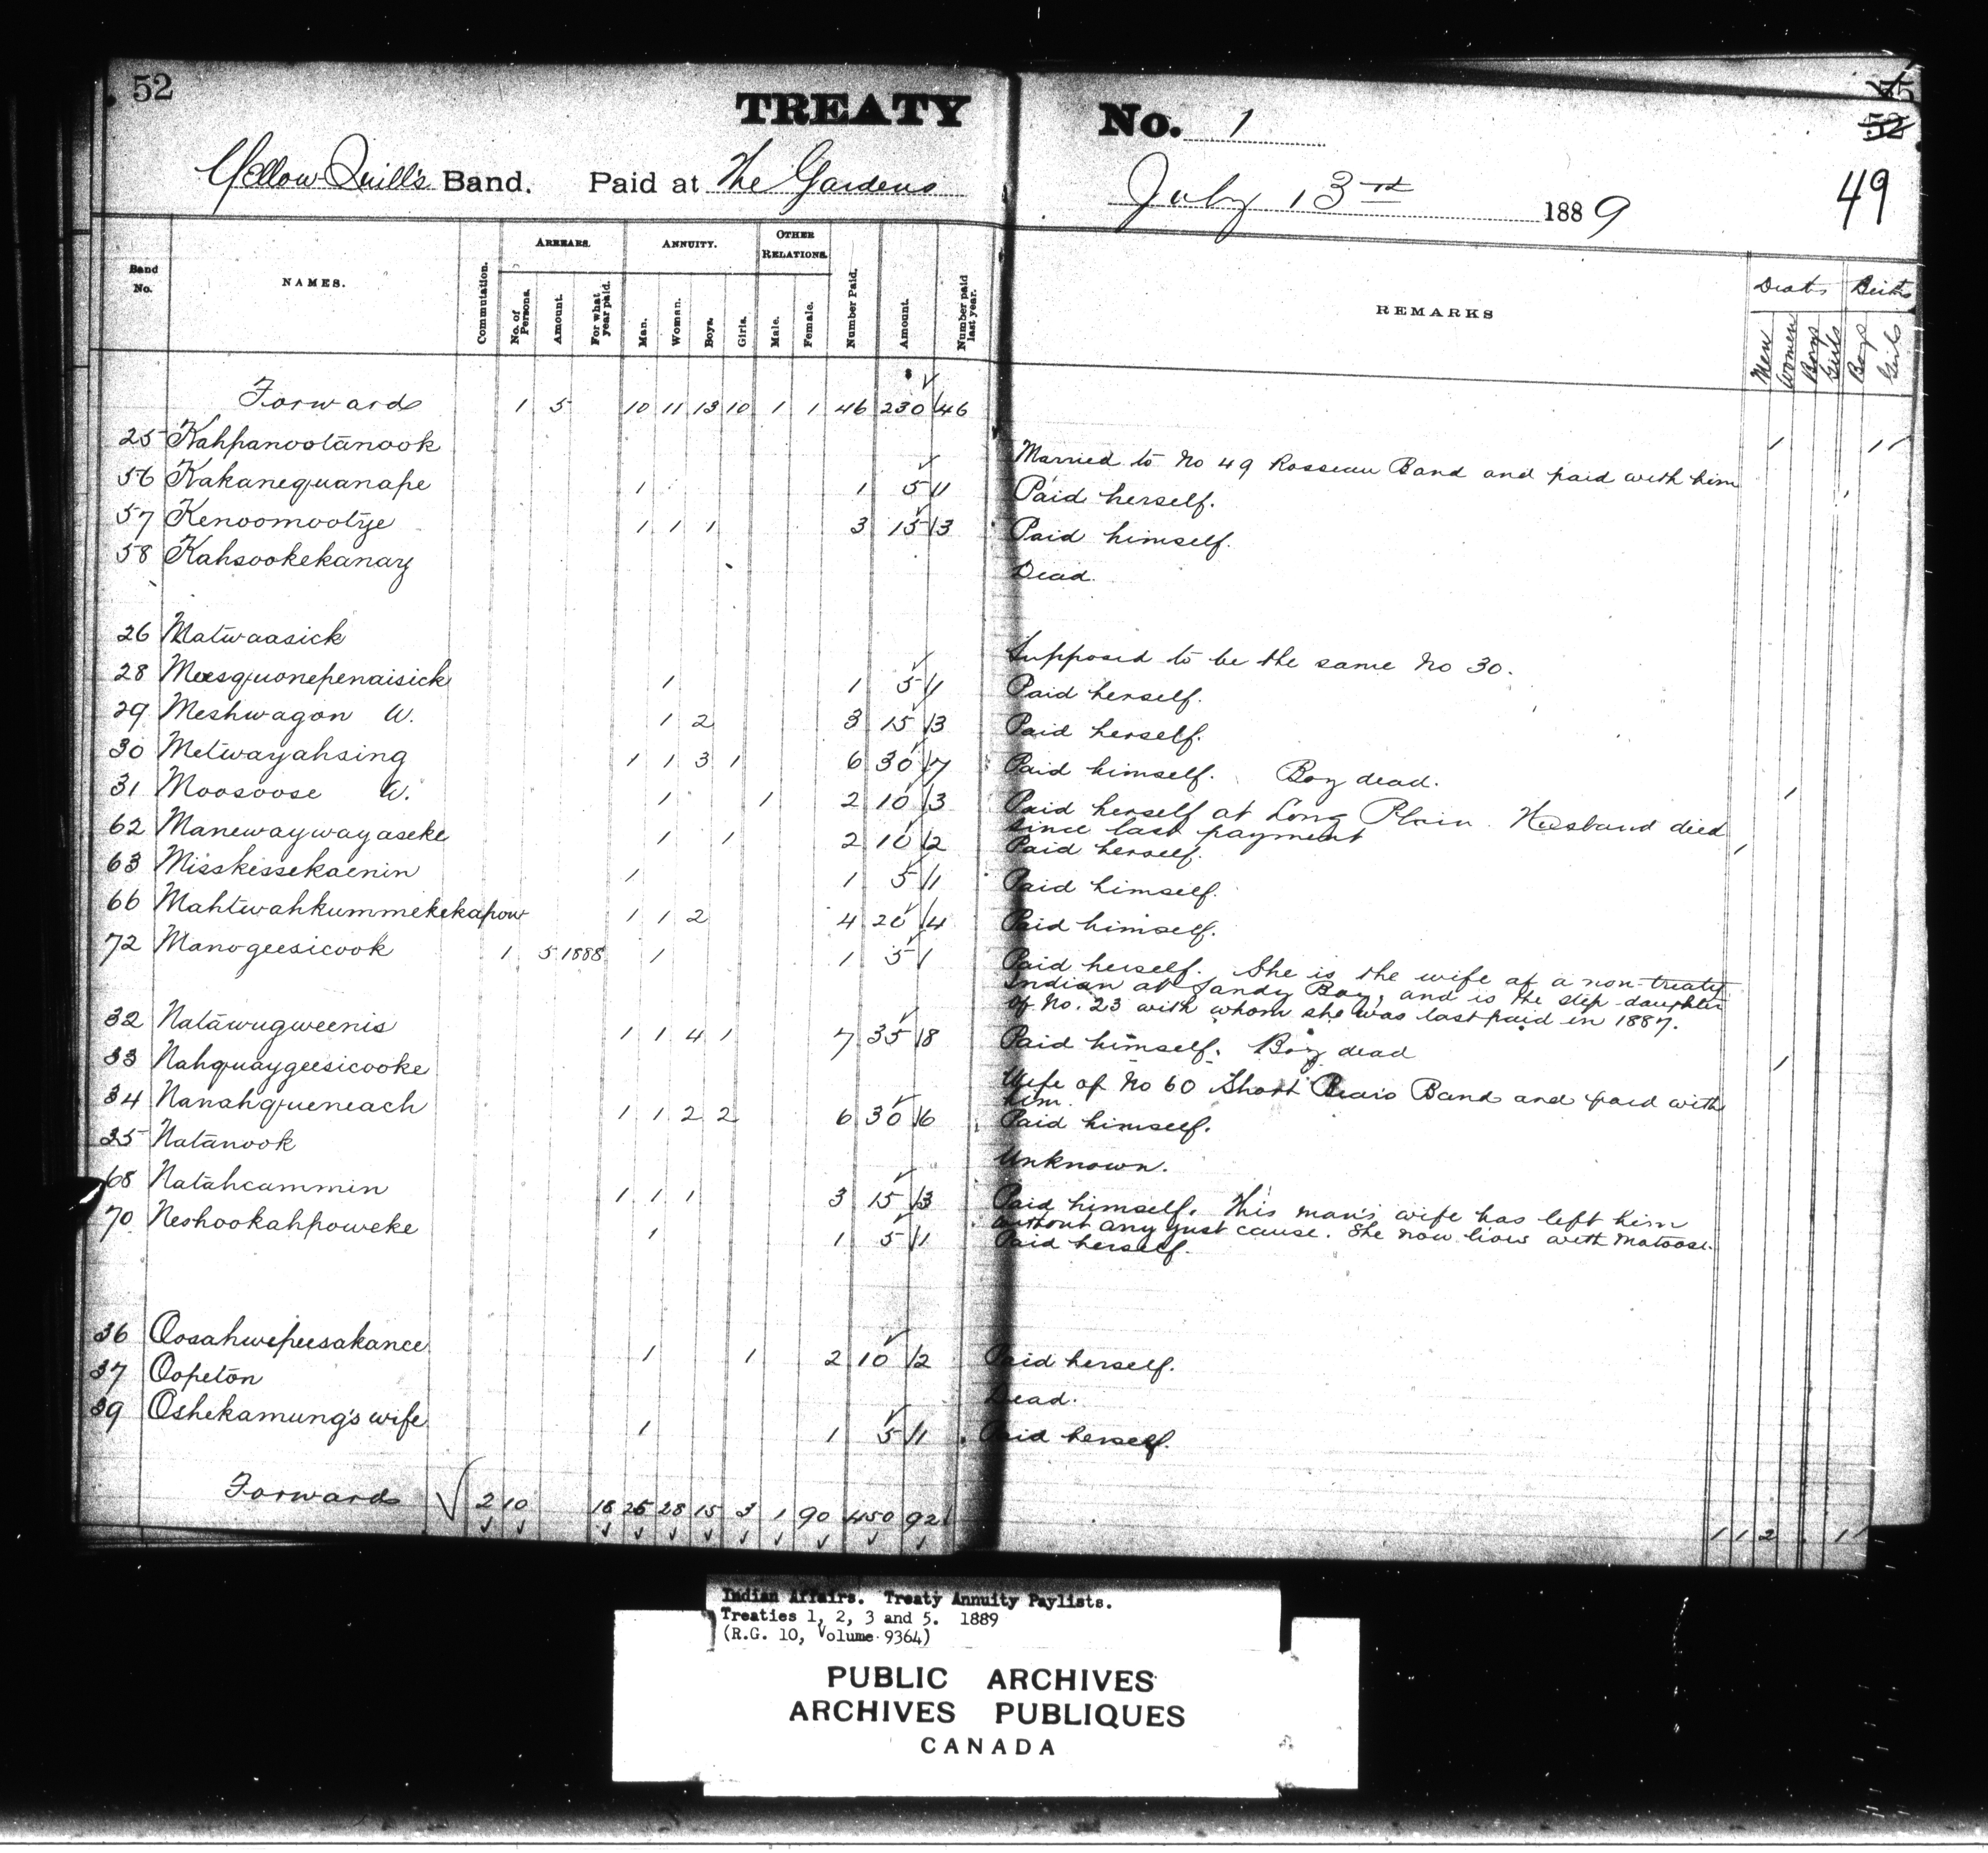 52
TREATY No. 1
52
49
Yellow Quill's Band. Paid at The Gardens July 13rd 1889
Band No. NAMES. Commutation. ARREARS. No. of Persons. Amount. For what year paid. ANNUITY. Man. Woman. Boys. Girls. OTHER RELATIONS. Male. Female. Number Paid. Amount. Number paid last year. REMARKS Deaths Men Women Boys Girls Births Boys Girls
Forward 1 5 10 11 13 10 1 1 46 230 46 1 1 1
25 Kahpanootanook Married to No 49 Rosseau Band and paid with him
56 Kakanequanape 1 1 5 1 Paid herself.
57 Kenoomootye 1 1 1 3 15 3 Paid himself.
58 Kahsookekanay Dead.
26 Matwaasick Supposed to be the same No 30.
28 Meesquonepenaisick 1 1 5 1 Paid herself.
29 Meshwagon W. 1 2 3 15 3 Paid herself.
30 Metwayahsing 1 1 3 1 6 30 7 Paid himself. Boy dead. 1
31 Moosoose W. 1 1 2 10 3 Paid herself at Long Plain. Husband died
since last payment 1
62 Manewaywayaseke 1 1 2 10 2 Paid herself.
63 Misskissekaenin 1 1 5 1 Paid himself.
66 Mahtwahkummekekapow 1 1 2 4 20 4 Paid himself.
72 Manogeesicook 1 5 1888 1 1 5 1 Paid herself. She is the wife of a non-treaty
Indian at Sandy Bay, and is the step-daughter
of No. 23 with whom she was last paid in 1887.
32 Natāwugweenis 1 1 4 1 7 35 8 Paid himself. Boy dead 1
33 Nahquaygeesicooke Wife of No 60 Short Bears Band and paid with
him.
34 Nanahqueneach 1 1 2 2 6 30 6 Paid himself.
35 Natānook Unknown.
68 Natahcammin 1 1 1 3 15 3 Paid himself. This man's wife has left him
without any just cause. She now lives with Matoose.
70 Neshookahpoweke 1 1 5 1 Paid herself.
36 Oosahwepeesakance 1 1 2 10 2 Paid herself.
37 Oopetōn Dead.
39 Oshekamung's wife 1 1 5 1 Paid herself.
Forward 2 10 18 25 28 15 3 1 90 450 92 1 1 2 1 1
Indian Affairs. Treaty Annuity Paylists.
Treaties 1, 2, 3 and 5. 1889
(R.G. 10, Volume 9364)
PUBLIC ARCHIVES
ARCHIVES PUBLIQUES
CANADA